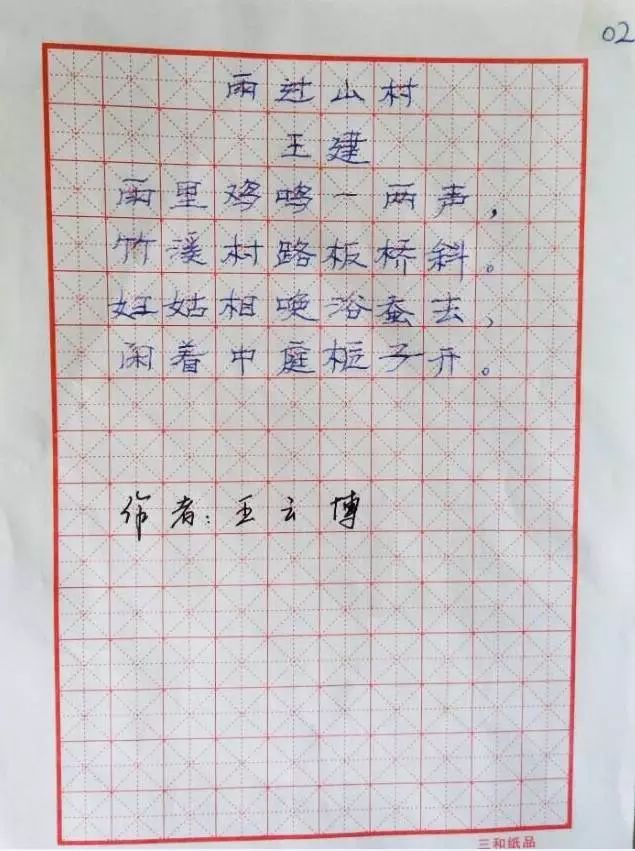 02
雨过山村
王建
雨里鸡鸣一两声，
竹溪村路板桥斜。
妇姑相唤浴蚕去，
闲着中庭栀子开。
作者：王云博
三和纸品